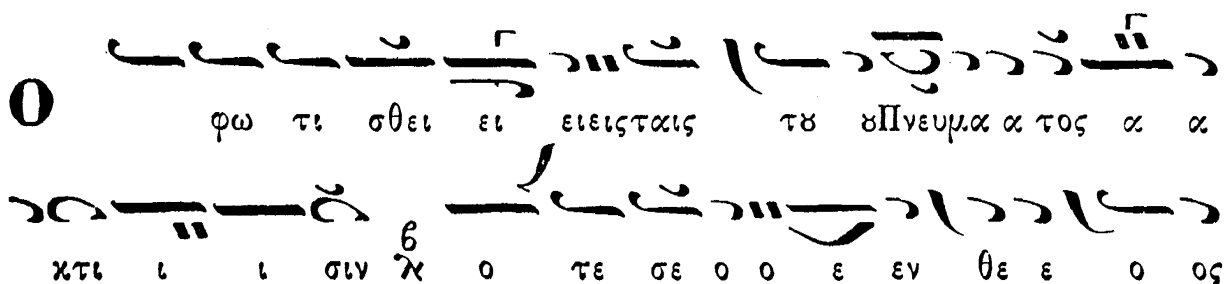 Ο φω τι σθει ει ειειςταις τȣ ȣΠνευμα α τος α α
κτι ι ι σιν ο τε σε ο ο ε εν θε ε ο ος